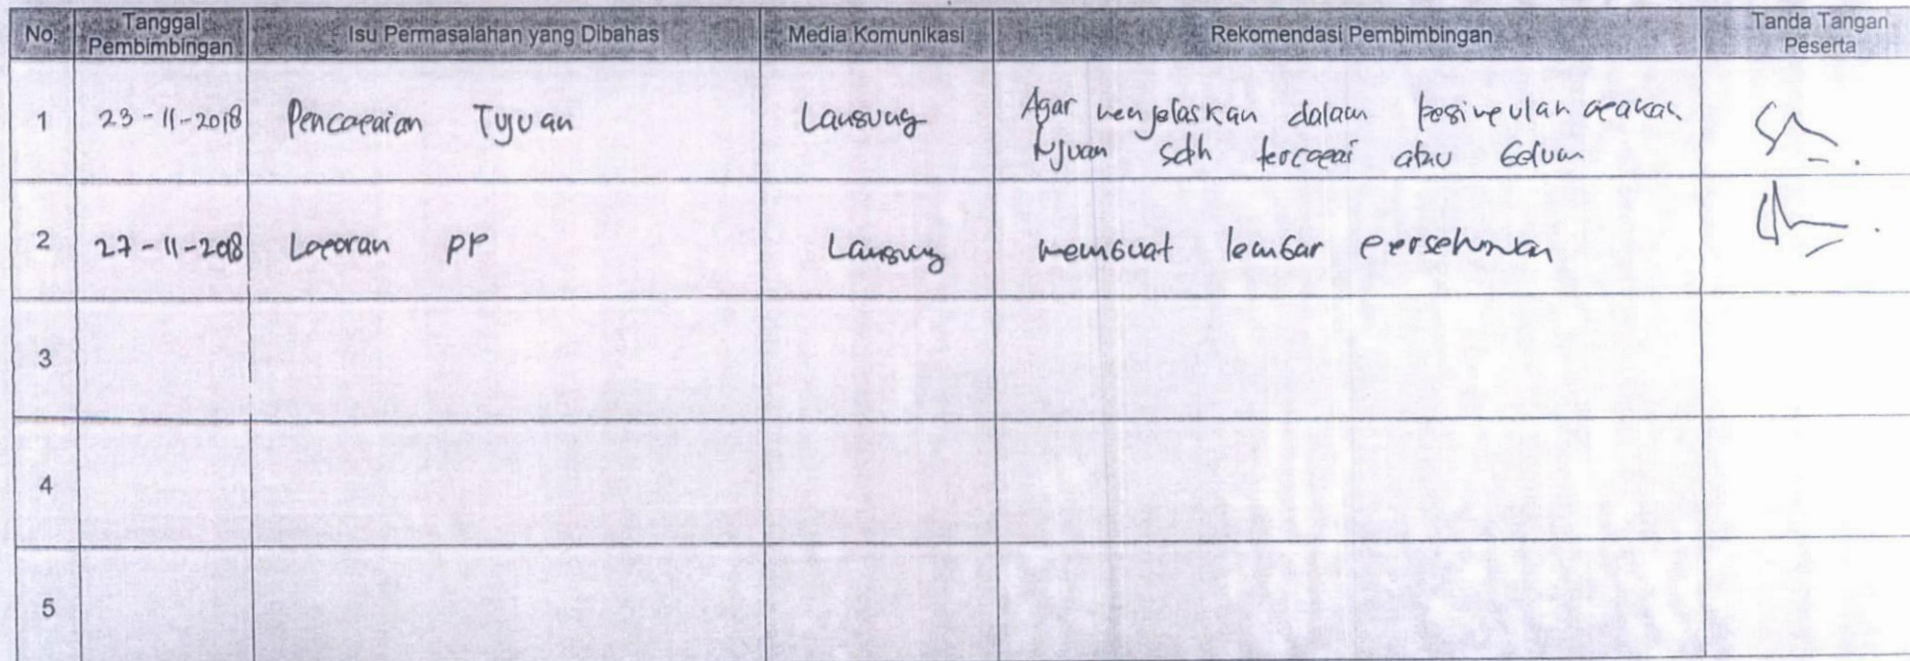 No. Tanggal Pembimbingan Isu Permasalahan yang Dibahas Media Komunikasi Rekomendasi Pembimbingan Tanda Tangan Peserta
1 23-11-2018 Pencapaian Tujuan Langsung Agar menjelaskan dalam kesimpulan apakah
tujuan sdh tercapai atau belum
2 27-11-2018 Laporan PP Langsung membuat lembar persetujuan
3
4
5